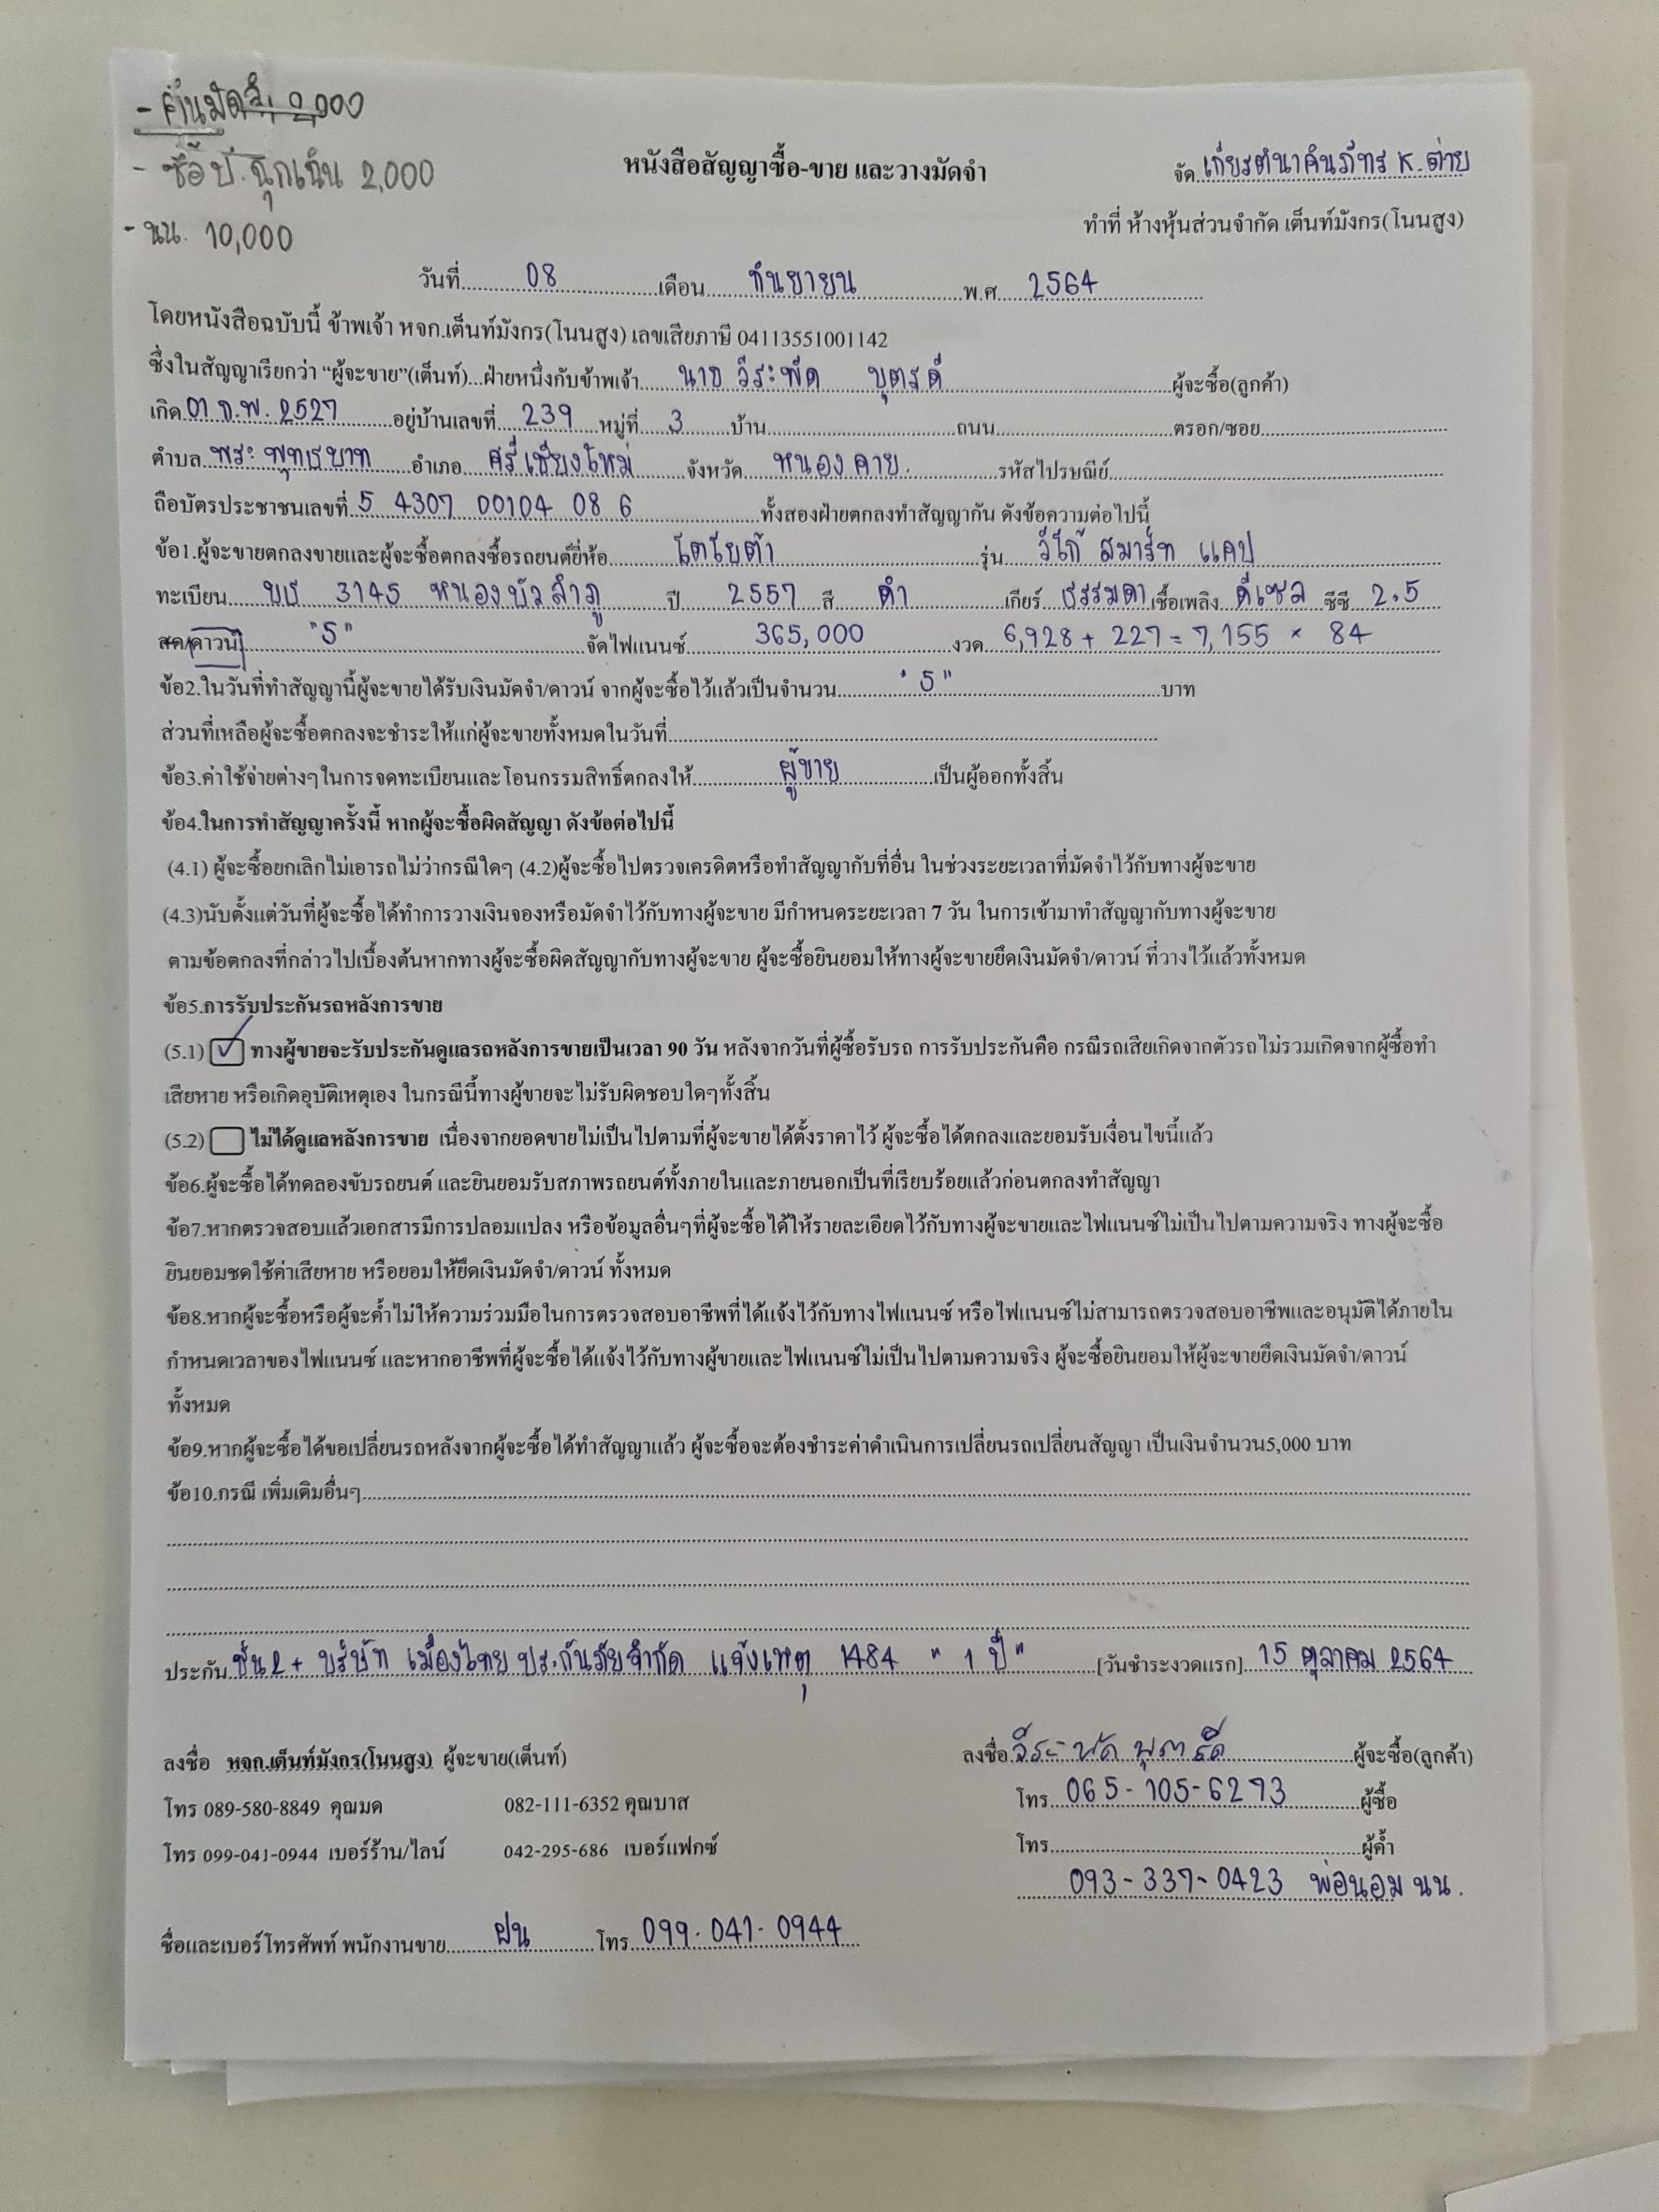 - คืนมัดจำ 2,000
- ซื้อป.ฉุกเฉิน 2,000
- นน. 10,000
หนังสือสัญญาซื้อ-ขาย และวางมัดจำ
จัด เกียรตินาคินภัทร K.ต่าย
ทำที่ ห้างหุ้นส่วนจำกัด เต็นท์มังกร(โนนสูง)
วันที่ 08 เดือน กันยายน พ.ศ 2564
โดยหนังสือฉบับนี้ ข้าพเจ้า หจก.เต็นท์มังกร(โนนสูง) เลขเสียภาษี 04113551001142
ซึ่งในสัญญาเรียกว่า “ผู้จะขาย”(เต็นท์)...ฝ่ายหนึ่งกับข้าพเจ้า นาย วีระพัด บุตรดี ผู้จะซื้อ(ลูกค้า)
เกิด 01 ก.พ. 2527 อยู่บ้านเลขที่ 239 หมู่ที่ 3 บ้าน ถนน ตรอก/ซอย
ตำบล พระพุทธบาท อำเภอ ศรีเชียงใหม่ จังหวัด หนองคาย. รหัสไปรษณีย์
ถือบัตรประชาชนเลขที่ 5 4307 00104 08 6 ทั้งสองฝ่ายตกลงทำสัญญากัน ดังข้อความต่อไปนี้
ข้อ1.ผู้จะขายตกลงขายและผู้จะซื้อตกลงซื้อรถยนต์ยี่ห้อ โตโยต้า รุ่น วีโก้ สมาร์ท แคป
ทะเบียน บธ 3145 หนองบัวลำภู ปี 2557 สี ดำ เกียร์ ธรรมดา เชื้อเพลิง ดีเซล ซีซี 2.5
สด/ดาวน์ "5" จัดไฟแนนซ์ 365,000 งวด 6,928 + 227 = 7,155 × 84
ข้อ2.ในวันที่ทำสัญญานี้ผู้จะขายได้รับเงินมัดจำ/ดาวน์ จากผู้จะซื้อไว้แล้วเป็นจำนวน "5" บาท
ส่วนที่เหลือผู้จะซื้อตกลงจะชำระให้แก่ผู้จะขายทั้งหมดในวันที่
ข้อ3.ค่าใช้จ่ายต่างๆในการจดทะเบียนและโอนกรรมสิทธิ์ตกลงให้ ผู้ขาย เป็นผู้ออกทั้งสิ้น
ข้อ4.ในการทำสัญญาครั้งนี้ หากผู้จะซื้อผิดสัญญา ดังข้อต่อไปนี้
(4.1) ผู้จะซื้อยกเลิกไม่เอารถไม่ว่ากรณีใดๆ (4.2)ผู้จะซื้อไปตรวจเครดิตหรือทำสัญญากับที่อื่น ในช่วงระยะเวลาที่มัดจำไว้กับทางผู้จะขาย
(4.3)นับตั้งแต่วันที่ผู้จะซื้อได้ทำการวางเงินจองหรือมัดจำไว้กับทางผู้จะขาย มีกำหนดระยะเวลา 7 วัน ในการเข้ามาทำสัญญากับทางผู้จะขาย
ตามข้อตกลงที่กล่าวไปเบื้องต้นหากทางผู้จะซื้อผิดสัญญากับทางผู้จะขาย ผู้จะซื้อยินยอมให้ทางผู้จะขายยึดเงินมัดจำ/ดาวน์ ที่วางไว้แล้วทั้งหมด
ข้อ5.การรับประกันรถหลังการขาย
(5.1) ✓ ทางผู้ขายจะรับประกันดูแลรถหลังการขายเป็นเวลา 90 วัน หลังจากวันที่ผู้ซื้อรับรถ การรับประกันคือ กรณีรถเสียเกิดจากตัวรถไม่รวมเกิดจากผู้ซื้อทำ
เสียหาย หรือเกิดอุบัติเหตุเอง ในกรณีนี้ทางผู้ขายจะไม่รับผิดชอบใดๆทั้งสิ้น
(5.2) ไม่ได้ดูแลหลังการขาย เนื่องจากยอดขายไม่เป็นไปตามที่ผู้จะขายได้ตั้งราคาไว้ ผู้จะซื้อได้ตกลงและยอมรับเงื่อนไขนี้แล้ว
ข้อ6.ผู้จะซื้อได้ทดลองขับรถยนต์ และยินยอมรับสภาพรถยนต์ทั้งภายในและภายนอกเป็นที่เรียบร้อยแล้วก่อนตกลงทำสัญญา
ข้อ7.หากตรวจสอบแล้วเอกสารมีการปลอมแปลง หรือข้อมูลอื่นๆที่ผู้จะซื้อได้ให้รายละเอียดไว้กับทางผู้จะขายและไฟแนนซ์ไม่เป็นไปตามความจริง ทางผู้จะซื้อ
ยินยอมชดใช้ค่าเสียหาย หรือยอมให้ยึดเงินมัดจำ/ดาวน์ ทั้งหมด
ข้อ8.หากผู้จะซื้อหรือผู้จะค้ำไม่ให้ความร่วมมือในการตรวจสอบอาชีพที่ได้แจ้งไว้กับทางไฟแนนซ์ หรือไฟแนนซ์ไม่สามารถตรวจสอบอาชีพและอนุมัติได้ภายใน
กำหนดเวลาของไฟแนนซ์ และหากอาชีพที่ผู้จะซื้อได้แจ้งไว้กับทางผู้ขายและไฟแนนซ์ไม่เป็นไปตามความจริง ผู้จะซื้อยินยอมให้ผู้จะขายยึดเงินมัดจำ/ดาวน์
ทั้งหมด
ข้อ9.หากผู้จะซื้อได้ขอเปลี่ยนรถหลังจากผู้จะซื้อได้ทำสัญญาแล้ว ผู้จะซื้อจะต้องชำระค่าดำเนินการเปลี่ยนรถเปลี่ยนสัญญา เป็นเงินจำนวน5,000 บาท
ข้อ10.กรณี เพิ่มเติมอื่นๆ
ประกัน ชั้น2+ บริษัท เมืองไทย ประกันภัยจำกัด แจ้งเหตุ 1484 " 1 ปี " [วันชำระงวดแรก] 15 ตุลาคม 2564
ลงชื่อ หจก.เต็นท์มังกร(โนนสูง) ผู้จะขาย(เต็นท์) ลงชื่อ วีระพัด บุตรดี ผู้จะซื้อ(ลูกค้า)
โทร 089-580-8849 คุณมด 082-111-6352 คุณบาส โทร 065-105-6293 ผู้ซื้อ
โทร 099-041-0944 เบอร์ร้าน/ไลน์ 042-295-686 เบอร์แฟกซ์ โทร ผู้ค้ำ
093-337-0423 พ่อนอม นน.
ชื่อและเบอร์โทรศัพท์ พนักงานขาย ฝน โทร 099-041-0944